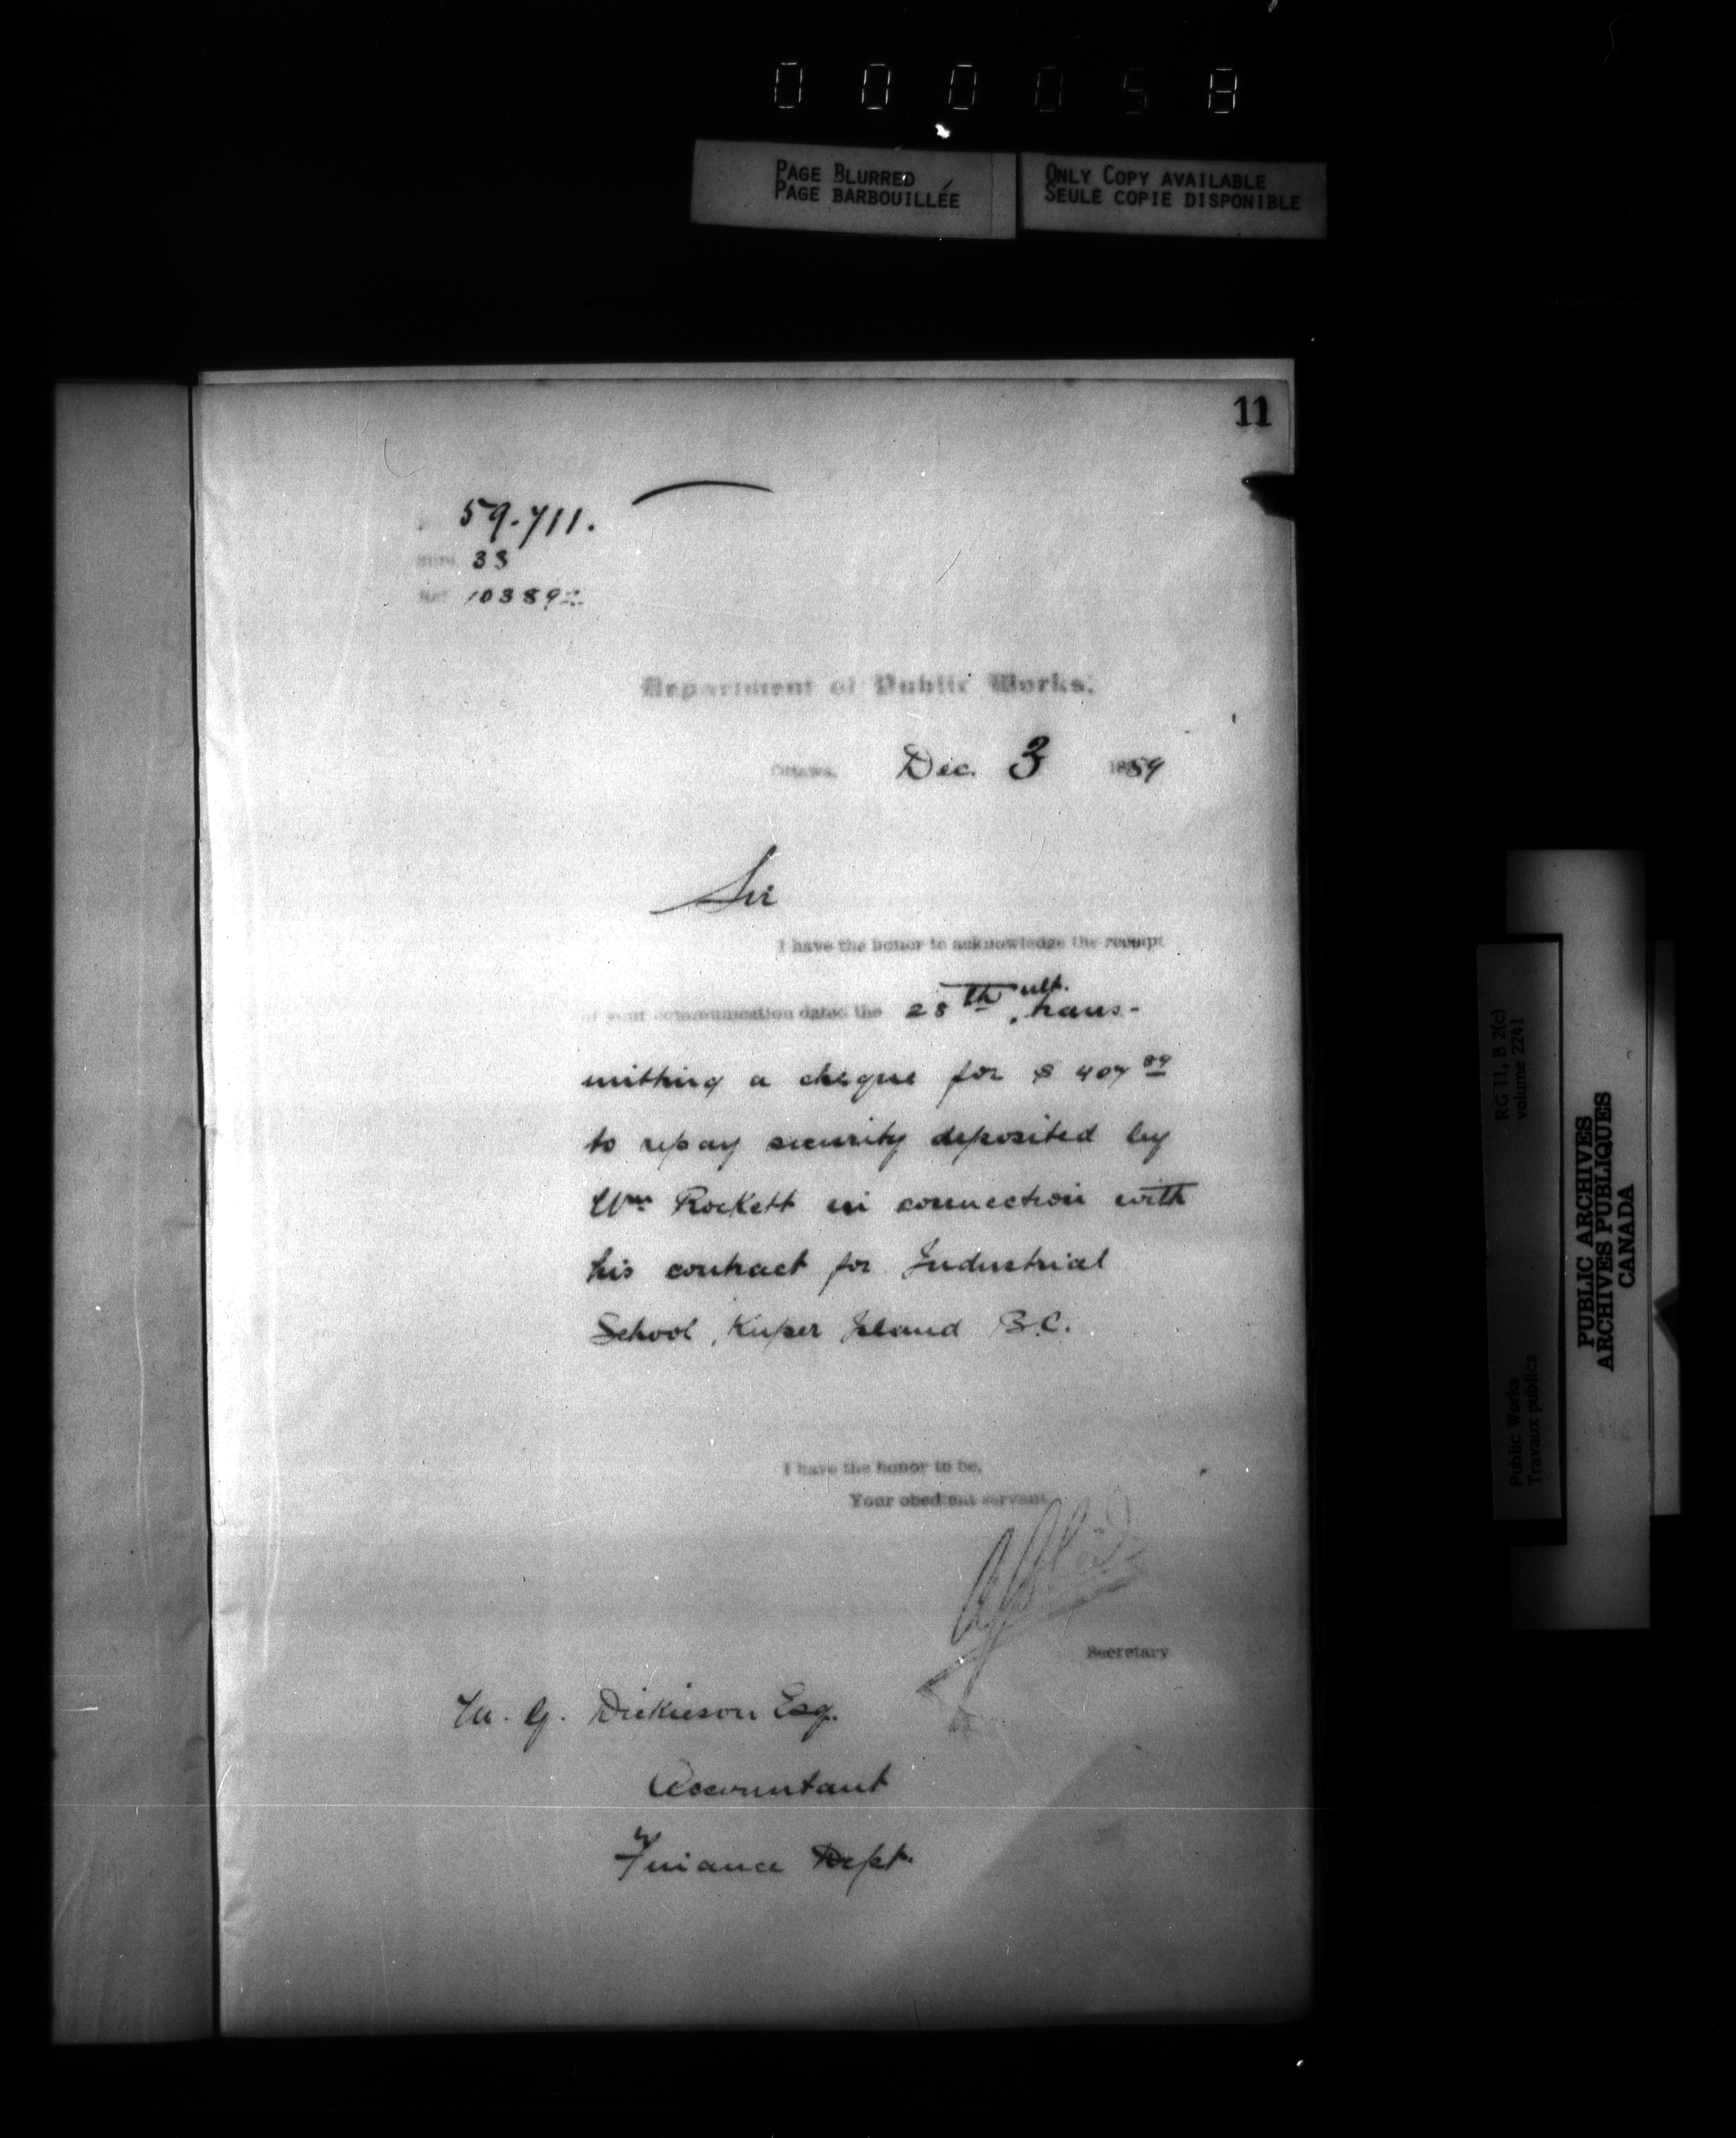 0 0 0 0 5 8
PAGE BLURRED
PAGE BARBOUILLÉE
ONLY COPY AVAILABLE
SEULE COPIE DISPONIBLE
11
59.711.
33
Ref 103892
Department of Public Works.
Ottawa, Dec. 3 1889
Sir
I have the honor to acknowledge the receipt
of your communication dated the 28th ult., trans-
mitting a cheque for $ 407 89
to repay security deposited by
Wm Rockett in connection with
his contract for Industrial
School, Kuper Island B.C.
I have the honor to be,
Your obedient servant
Secretary
M. G. Dickieson Esq.
Accountant
Finance Dept.
RG 11, B 2(c)
volume 2241
Public Works
Travaux publics
PUBLIC ARCHIVES
ARCHIVES PUBLIQUES
CANADA